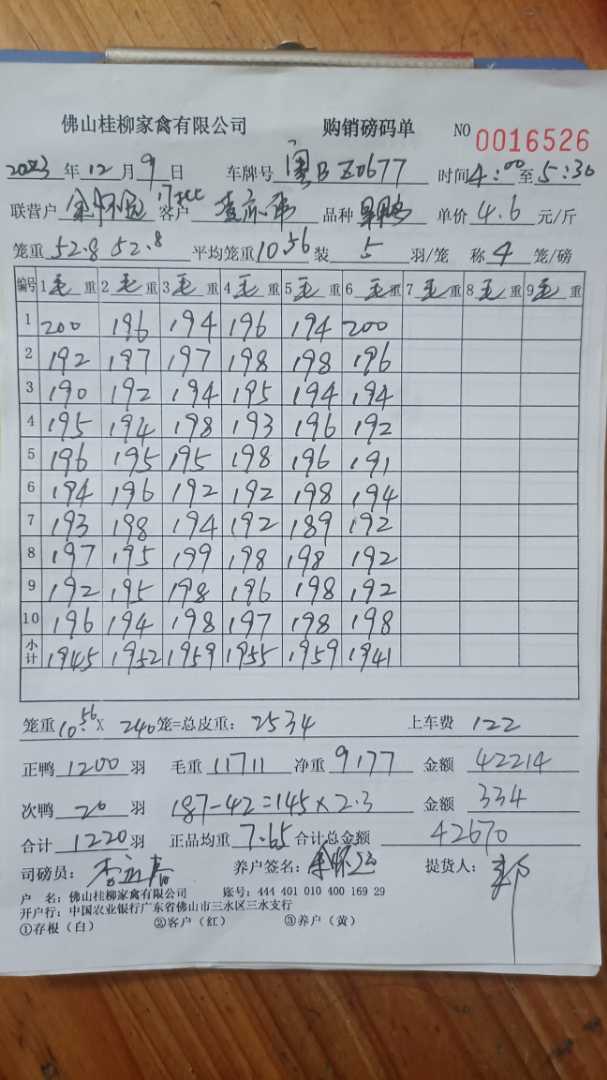 佛山桂柳家禽有限公司 购销磅码单 NO 0016526
2023年12月9日 车牌号 粤B Z0677 时间4:00至5:30
联营户 客户 品种 单价4.6元/斤
笼重52.8 52.8 平均笼重10.56装5羽/笼 称4笼/磅
编号 1毛重 2毛重 3毛重 4毛重 5毛重 6毛重 7毛重 8毛重 9毛重
1 200 196 194 196 194 200
2 192 197 197 198 198 196
3 190 192 194 195 194 194
4 195 194 198 193 196 192
5 196 195 195 198 196 191
6 194 196 192 192 198 194
7 193 198 194 192 189 192
8 197 195 199 198 198 192
9 192 195 198 196 198 192
10 196 194 198 197 198 198
小计 1945 1952 1959 1955 1959 1941
笼重10.56X 240笼=总皮重:2534 上车费 122
正鸭1200羽 毛重11711净重9177 金额42214
次鸭20羽 187-42=145×2.3 金额334
合计1220羽 正品均重7.65合计总金额42670
司磅员: 养户签名:余怀远 提货人:郭
户 名:佛山桂柳家禽有限公司 账号:444 401 010 400 169 29
开户行:中国农业银行广东省佛山市三水区三水支行
①存根(白) ②客户(红) ③养户(黄)